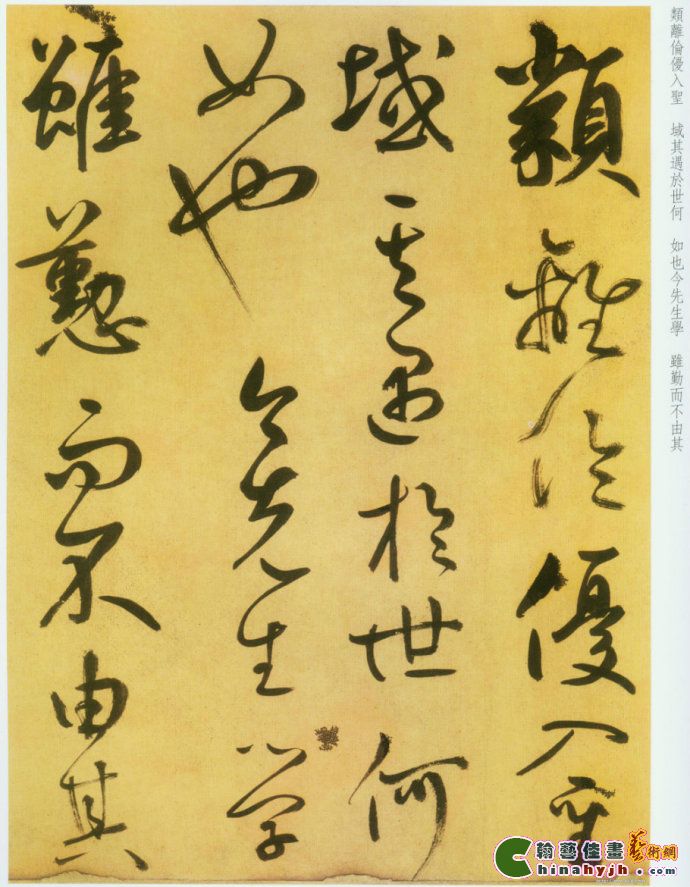 類離倫優入聖
域其遇於世何
如也今先生學
雖勤而不由其
類離倫優入聖 域其遇於世何 如也今先生學 雖勤而不由其
翰藝佳畫藝術網
Chinahyjh.com